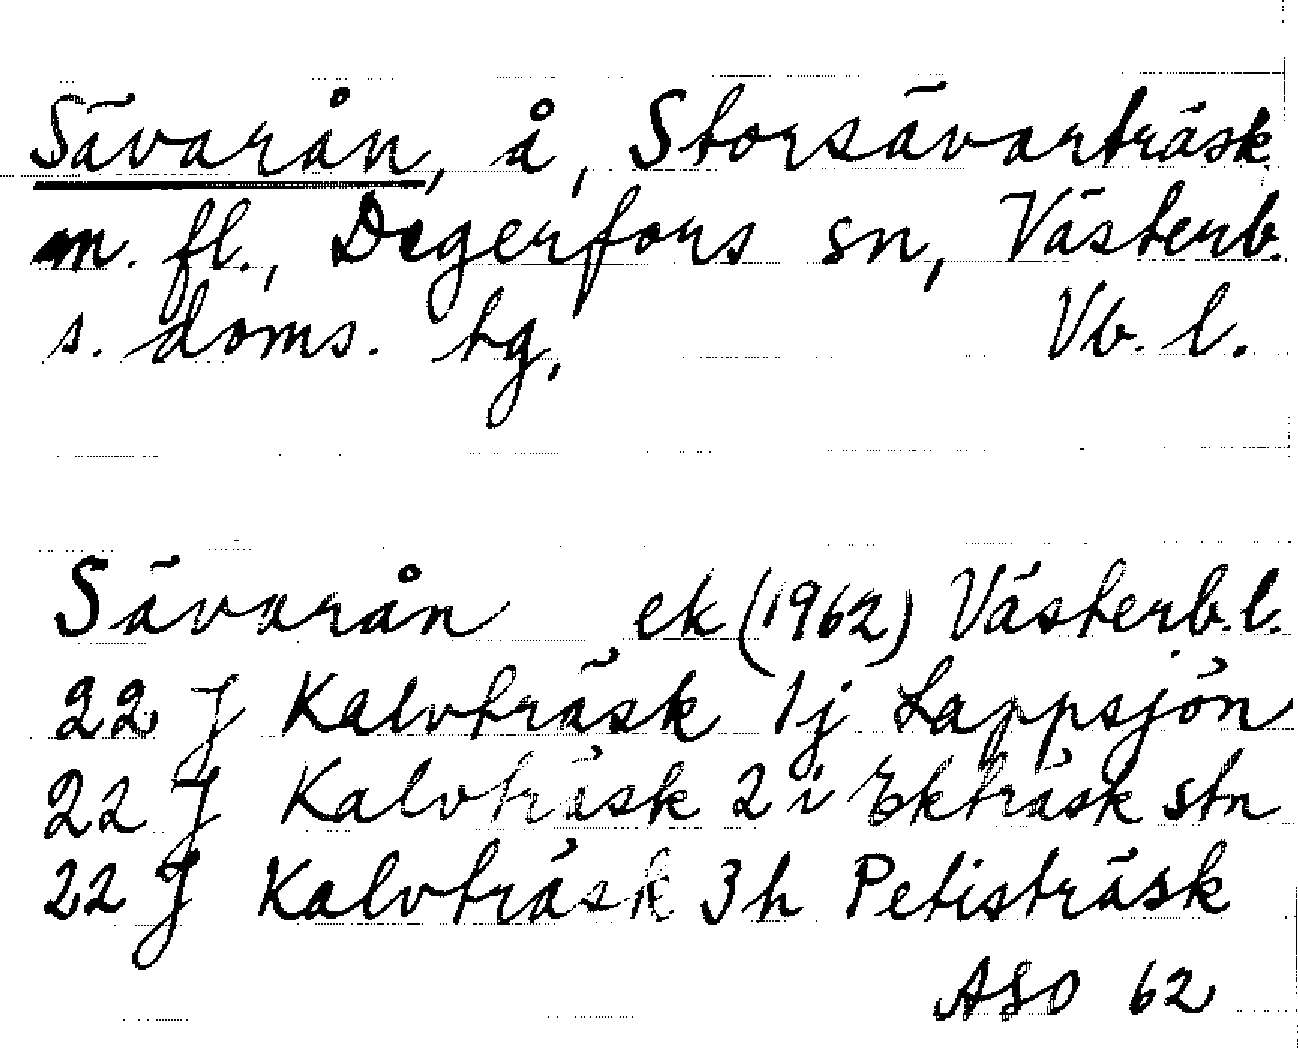 Sävarån, å, Storsävarträsk
m. fl., Degerfors sn, Västerb.
s. doms. tg, Vb. l.
Sävarån ek (1962) Västerb. l.
22 J Kalvträsk 1j Lappsjön
22 J Kalvträsk 2i Ekträsk stn
22 J Kalvträsk 3h Petisträsk
ASO 62